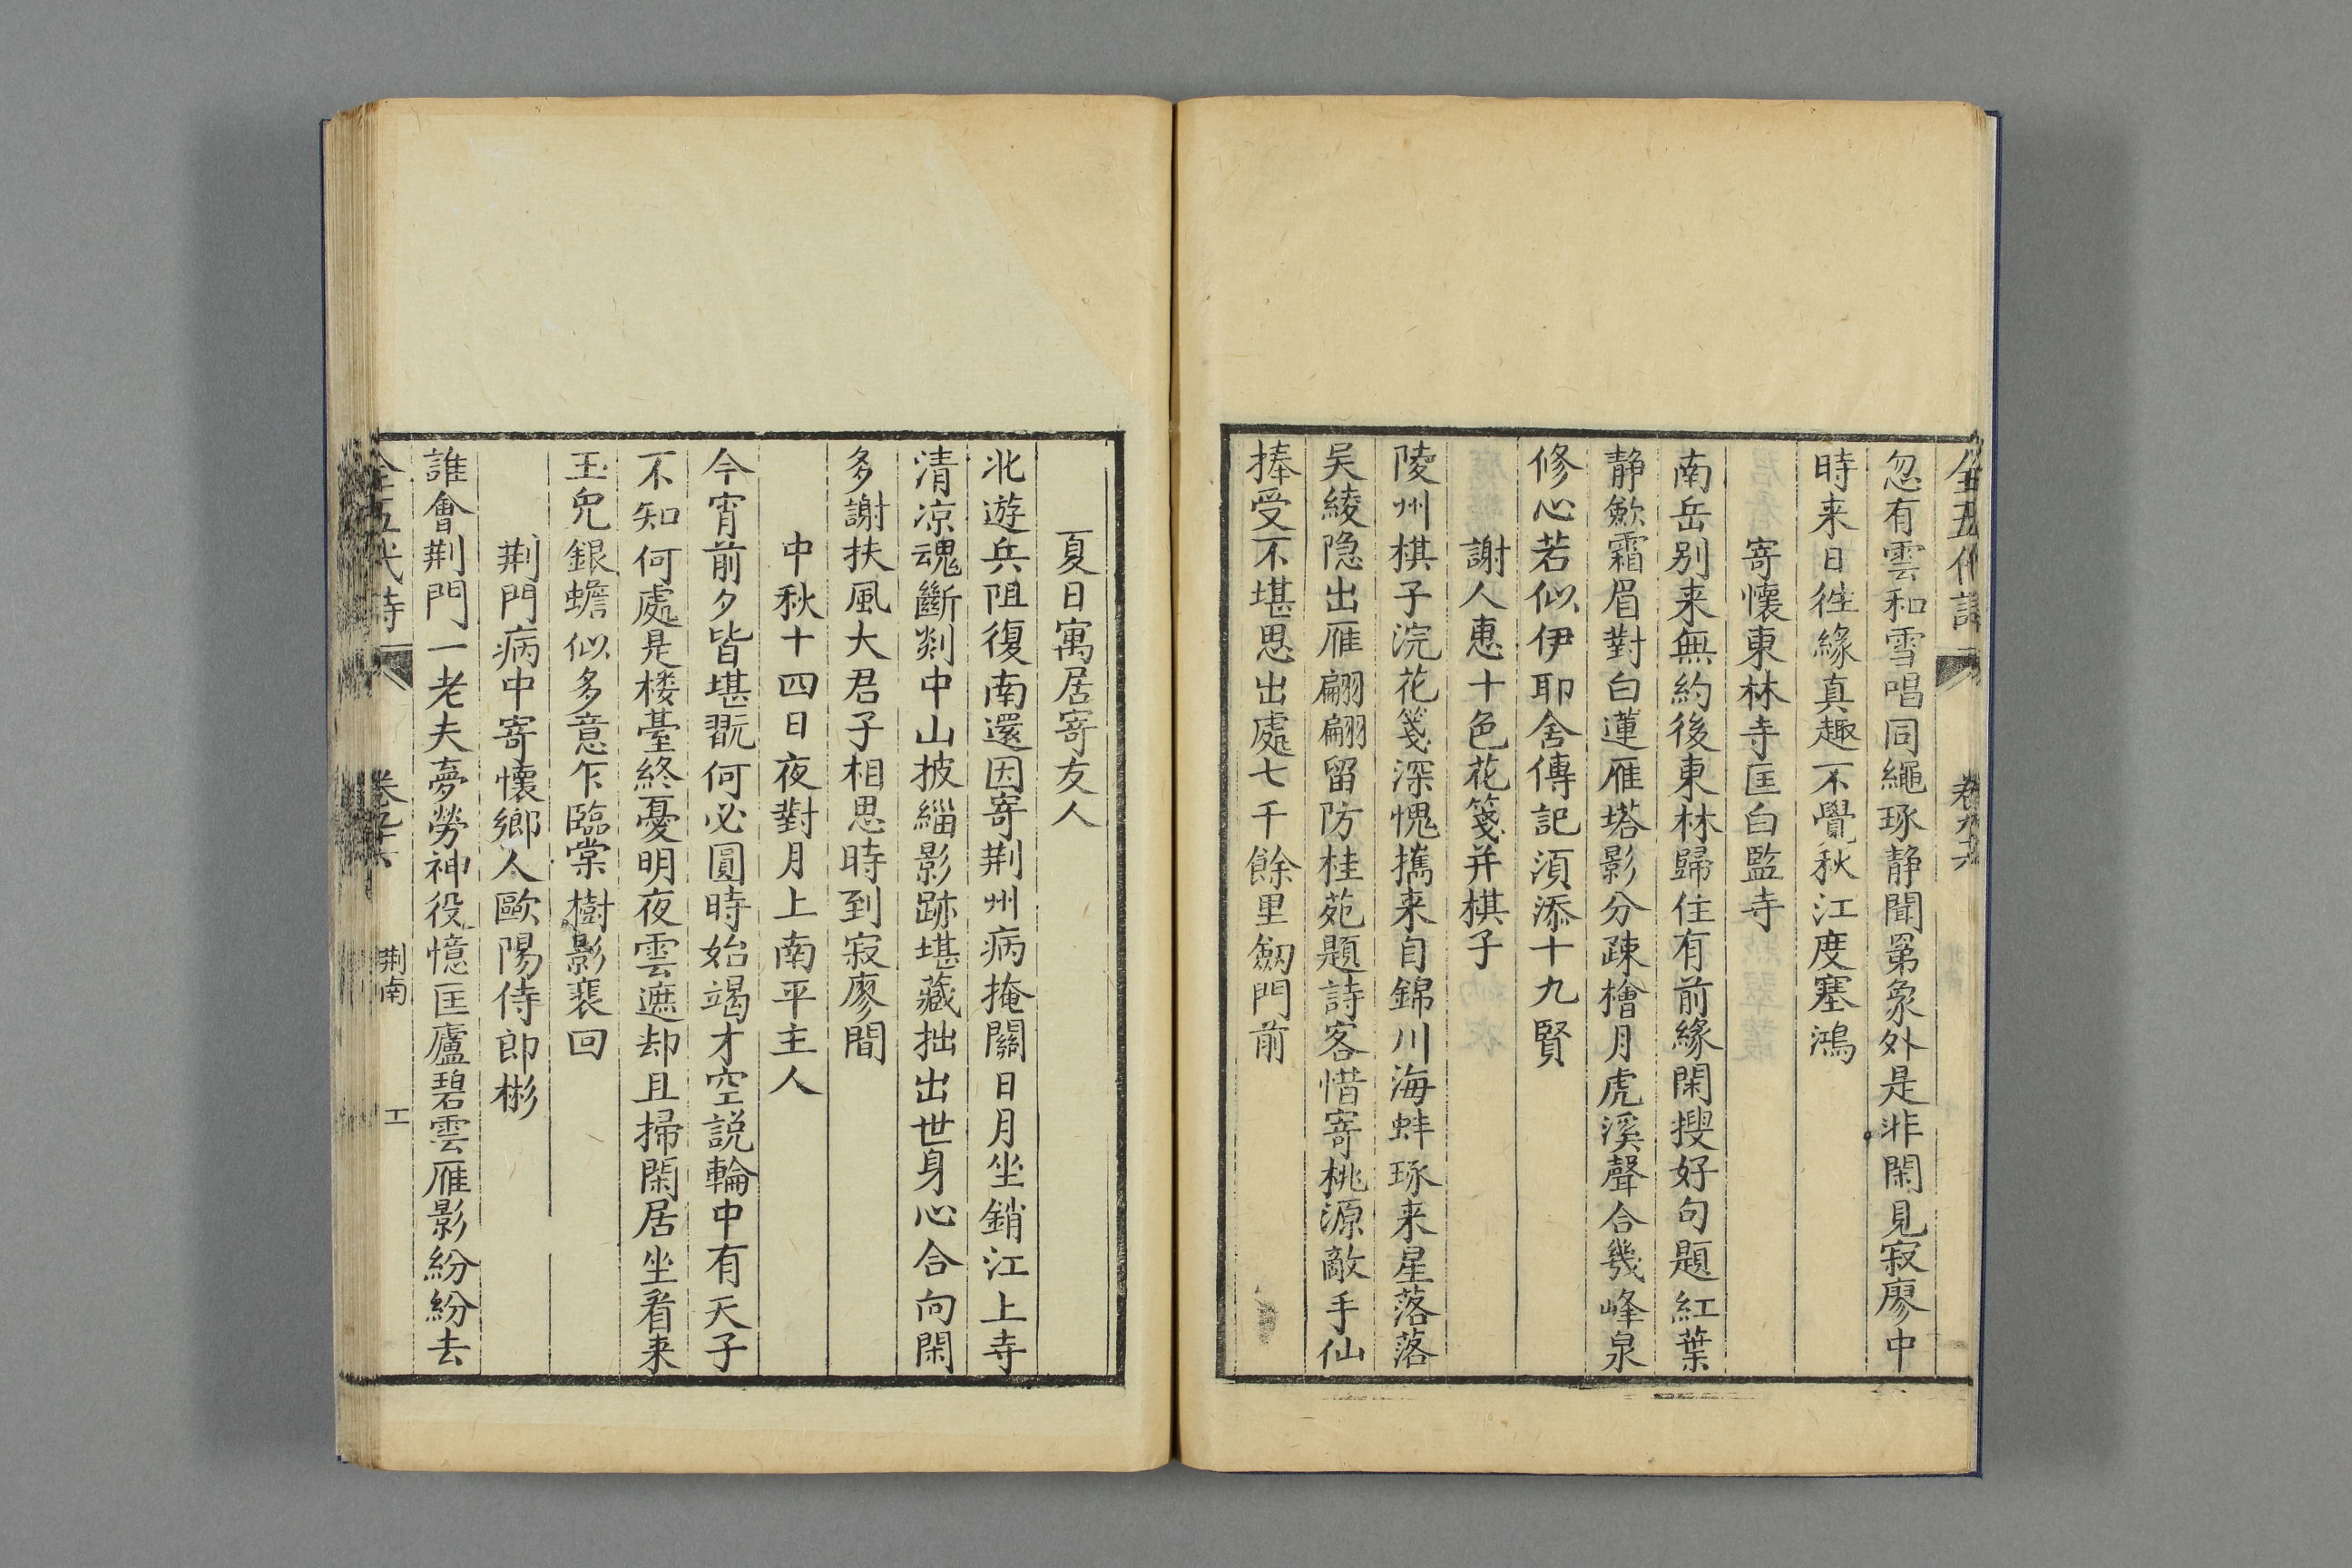 全五代詩 卷九十六
忽有雲和雪唱同繩琢静聞䍤象外是非閑見寂廖中
時来日徃緣真趣不覺秋江度塞鴻
寄懷東林寺匡白監寺
南岳别来無約後東林歸住有前緣閑搜好句題紅葉
静歛霜眉對白蓮雁塔影分疎檜月虎溪聲合幾峰泉
修心若似伊耶舍傳記須添十九賢
謝人惠十色花箋并棋子
陵州棋子浣花箋深愧攜来自錦川海蚌琢来星落落
吴綾隐出雁翩翩留防桂苑題詩客惜寄桃源敵手仙
捧受不堪思出處七千餘里劔門前
夏日寓居寄友人
北遊兵阻復南還因寄荆州病掩關日月坐銷江上寺
清凉魂斷剡中山披緇影跡堪藏拙出世身心合向閑
多謝扶風大君子相思時到寂廖間
中秋十四日夜對月上南平主人
今宵前夕皆堪翫何必圓時始竭才空説輪中有天子
不知何處是楼臺終憂明夜雲遮却且掃閑居坐看来
玉兔銀蟾似多意乍臨棠樹影裴回
荆門病中寄懷鄉人歐陽侍郎彬
誰會荆門一老夫夢勞神役憶匡廬碧雲雁影紛紛去
全五代詩 卷九十六 荆南 工